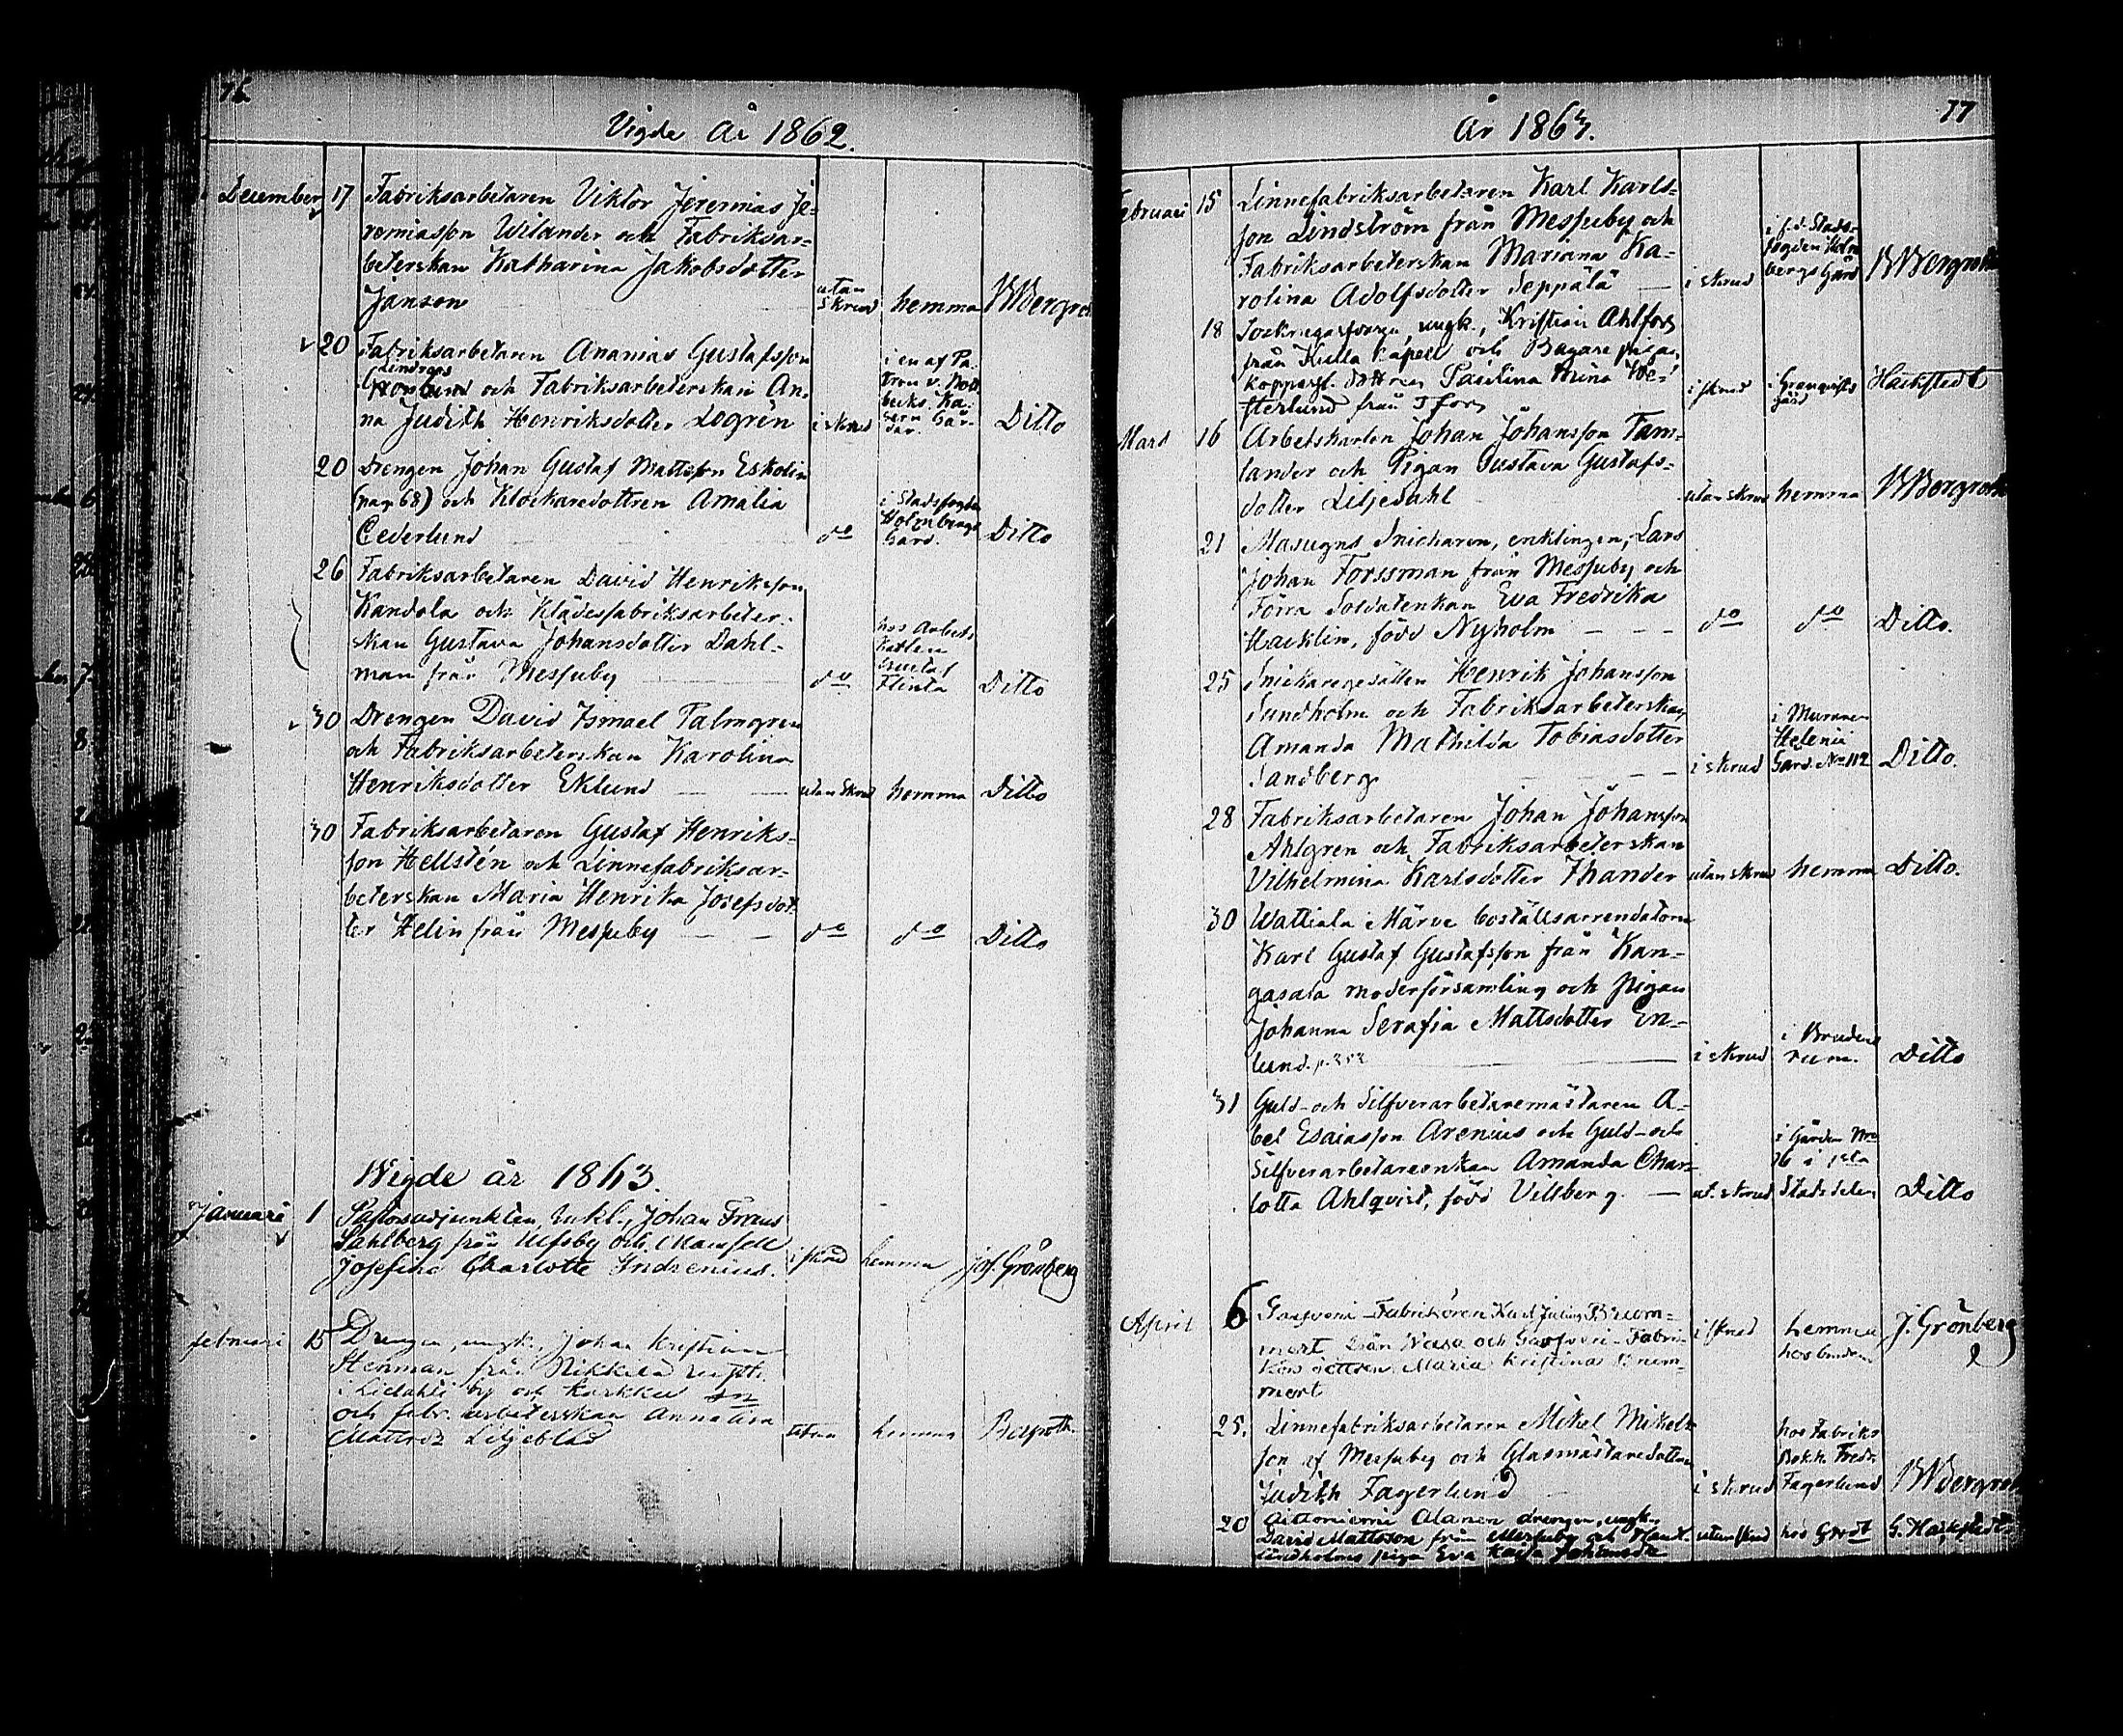 76.
Vigde År 1862.
December 17 Fabriksarbetaren Viktor Jeremias Je-
remiasson Wilander och Fabriksar-
beterskan Katharina Jakobsdotter
Janson utan skrud hemma BWBergroth
20 Fabriksarbetaren Ananias Gustafsson
Lindroos
och Fabriksarbeterskan An-
na Judith Henriksdotter Logrén i skrud i en af Pa-
tron v. Nott-
becks Ka-
sern Går-
dar. Ditto
20 Drengen Johan Gustaf Mattsson Eskolin
(pag 68) och Klockaredottren Amalia
Cederlund do i Stadsfogden
Holmbergs
Gård. Ditto
26 Fabriksarbetaren David Henriksson
Kandola och Klädesfabriksarbeter-
skan Gustava Johansdotter Dahl-
man från Messuby do hos Arbets
Karlen
Gustaf
Flinta Ditto
30 Drengen David Ismael Palmgren
och Fabriksarbeterskan Karolina
Henriksdotter Eklund utan skrud hemma Ditto
30 Fabriksarbetaren Gustaf Henriks-
son Hellstén och Linnefabriksar-
beterskan Maria Henrika Josefsdot-
ter Helin från Messuby do do Ditto
Wigde år 1863.
Januari 1 Pastorsadjunkten, Enkl., Johan Frans
Sahlberg från Ulfsby och Mamsell
Josefina Charlotte Indrenius. i skrud hemma Jos. Grönberg
februari 15 Drengen, ungk., Johan Kristian
Stenman från Nikkilä
i Lielahti by och Karkku sn
och fabr. arbeterskan Anna Lisa
Mattsdr Liljeblad utan hemma Bergroth
77
År 1863.
Februari 15 Linnefabriksarbetaren Karl Karls-
son Lindström från Messuby och
Fabriksarbeterskan Mariana Ka-
rolina Adolfsdotter Seppälä i skrud i f.d. Stads-
fogden Holm
bergs Gård BWBergroth
18 ungk., Kristian Ahlfors
från Kulla Kapell och Bagare pigan,
dottren Paulina Stina We-
sterlund från Tfors i skrud i Granqvists
gård Hackstedt
Mars 16 Arbetskarlen Johan Johansson Tam-
lander och Pigan Gustava Gustafs-
dotter Liljedahl utan skrud hemma BWBergroth
21 Masugns Snickaren, enklingen, Lars
Johan Forssman från Messuby och
Förra Soldatenkan Eva Fredrika
Hacklin, född Nyholm do do Ditto.
25 Snickaregesällen Henrik Johansson
Sundholm och Fabriksarbeterskan
Amanda Mathilda Tobiasdotter
Sandberg i skrud i Murare
Helenii
Gård No 112 Ditto.
28 Fabriksarbetaren Johan Johansson
Ahlgren och Fabriksarbeterskan
Vilhelmina Karlsdotter Thander utan skrud hemma Ditto.
30 Wattiala Märve boställsarrendatorn
Karl Gustaf Gustafsson från Kan-
gasala moderförsamling och Pigan
Johanna Serafia Mattsdotter En-
lund. p. 353 i skrud i Brudens
rum. Ditto
31 Guld- och Silfverarbetaremästaren A-
bel Esaiasson Arenius och Guld- och
Silfverarbetareenkan Amanda Char-
lotta Ahlqvist, född Villberg. ut. skrud i Gården Nro
76 i 1sta
Stadsdelen Ditto
April 6 Garfveri-Fabrikören Karl Julius Brum-
mert från Wasa och Garfveri-Fabri-
körs dottren Maria Kristina Brum-
mert i skrud hemma
hos bruden J. Grönberg
25. Linnefabriksarbetaren Mikel Mikels-
son af Messuby och Glasmästaredottren
Judith Fagerlund i skrud hos Fabriks
Bokh. Fredr.
Fagerlund BWBergroth
20 Aittoniemi Alanen drengen, ungk.
David Mattsson från Messuby och Handl.
Lindholms piga Eva Kaisa Johansdr utan skrud hos Grodt G. Hackstedt